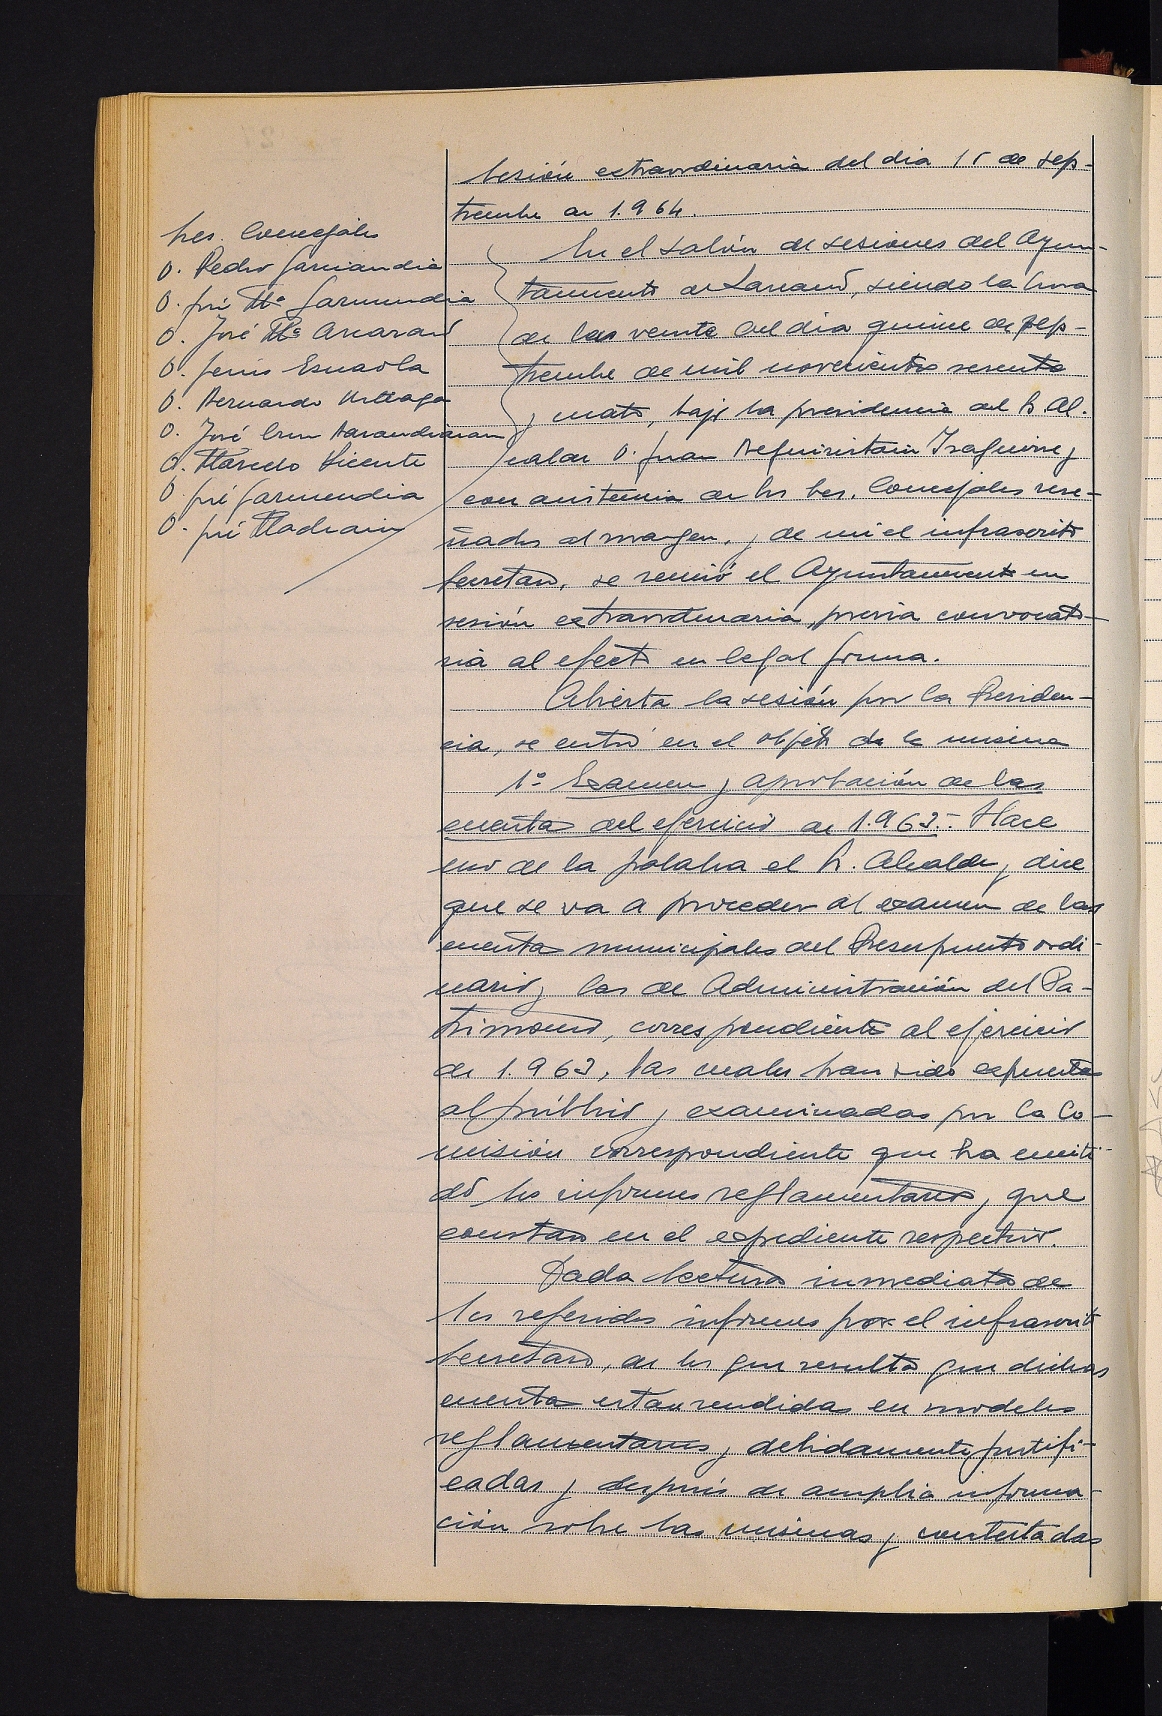 Sres. Concejales
D. Pedro Garciandia
D. José Mª Garmendia
D. José Mª Arcaraso
D. Jesús Esnaola
D. Bernardo Urteaga
D. José Barandiaran
D. Marcelo Vicente
D. José Garmendia
D. José
Sesión extraordinaria del dia 15 de Sep-
tiembre de 1.964.
En el salón de sesiones del Ayun-
tamiento de Lazcano, siendo la hora
de las veinte del dia quince de Sep-
tiembre de mil novecientos sesenta
y cuatro, bajo la presidencia del Sr. Al-
calde D. Juan Beguiristain Izaguirre y
con asistencia de los Sres. Concejales rese-
ñados al margen, y de mi el infrascrito
Secretario, se reunió el Ayuntamiento en
sesión extraordinaria, previa convocato-
ria al efecto en legal forma.
Abierta la sesión por la Presiden-
cia, se entró en el objeto de la misma
1º Examen y aprobación de las
cuentas del ejercicio de 1.963.- Hace
uso de la palabra el Sr. Alcalde y dice
que se va a proceder al examen de las
cuentas municipales del Presupuesto ordi-
nario y las de Administración del Pa-
trimonio, correspondiente al ejercicio
de 1.963, las cuales han sido expuestas
al público y examinadas por la Co-
misión correspondiente que ha emiti-
do los informes reglamentarios, que
constan en el expediente respectivo.
Dada lectura inmediata de
los referidos informes por el infrascrito
Secretario, de los que resulta que dichas
cuentas estan rendidas en modelos
reglamentarios y debidamente justifi-
cadas y después de amplia informa-
ción sobre las mismas y contestadas